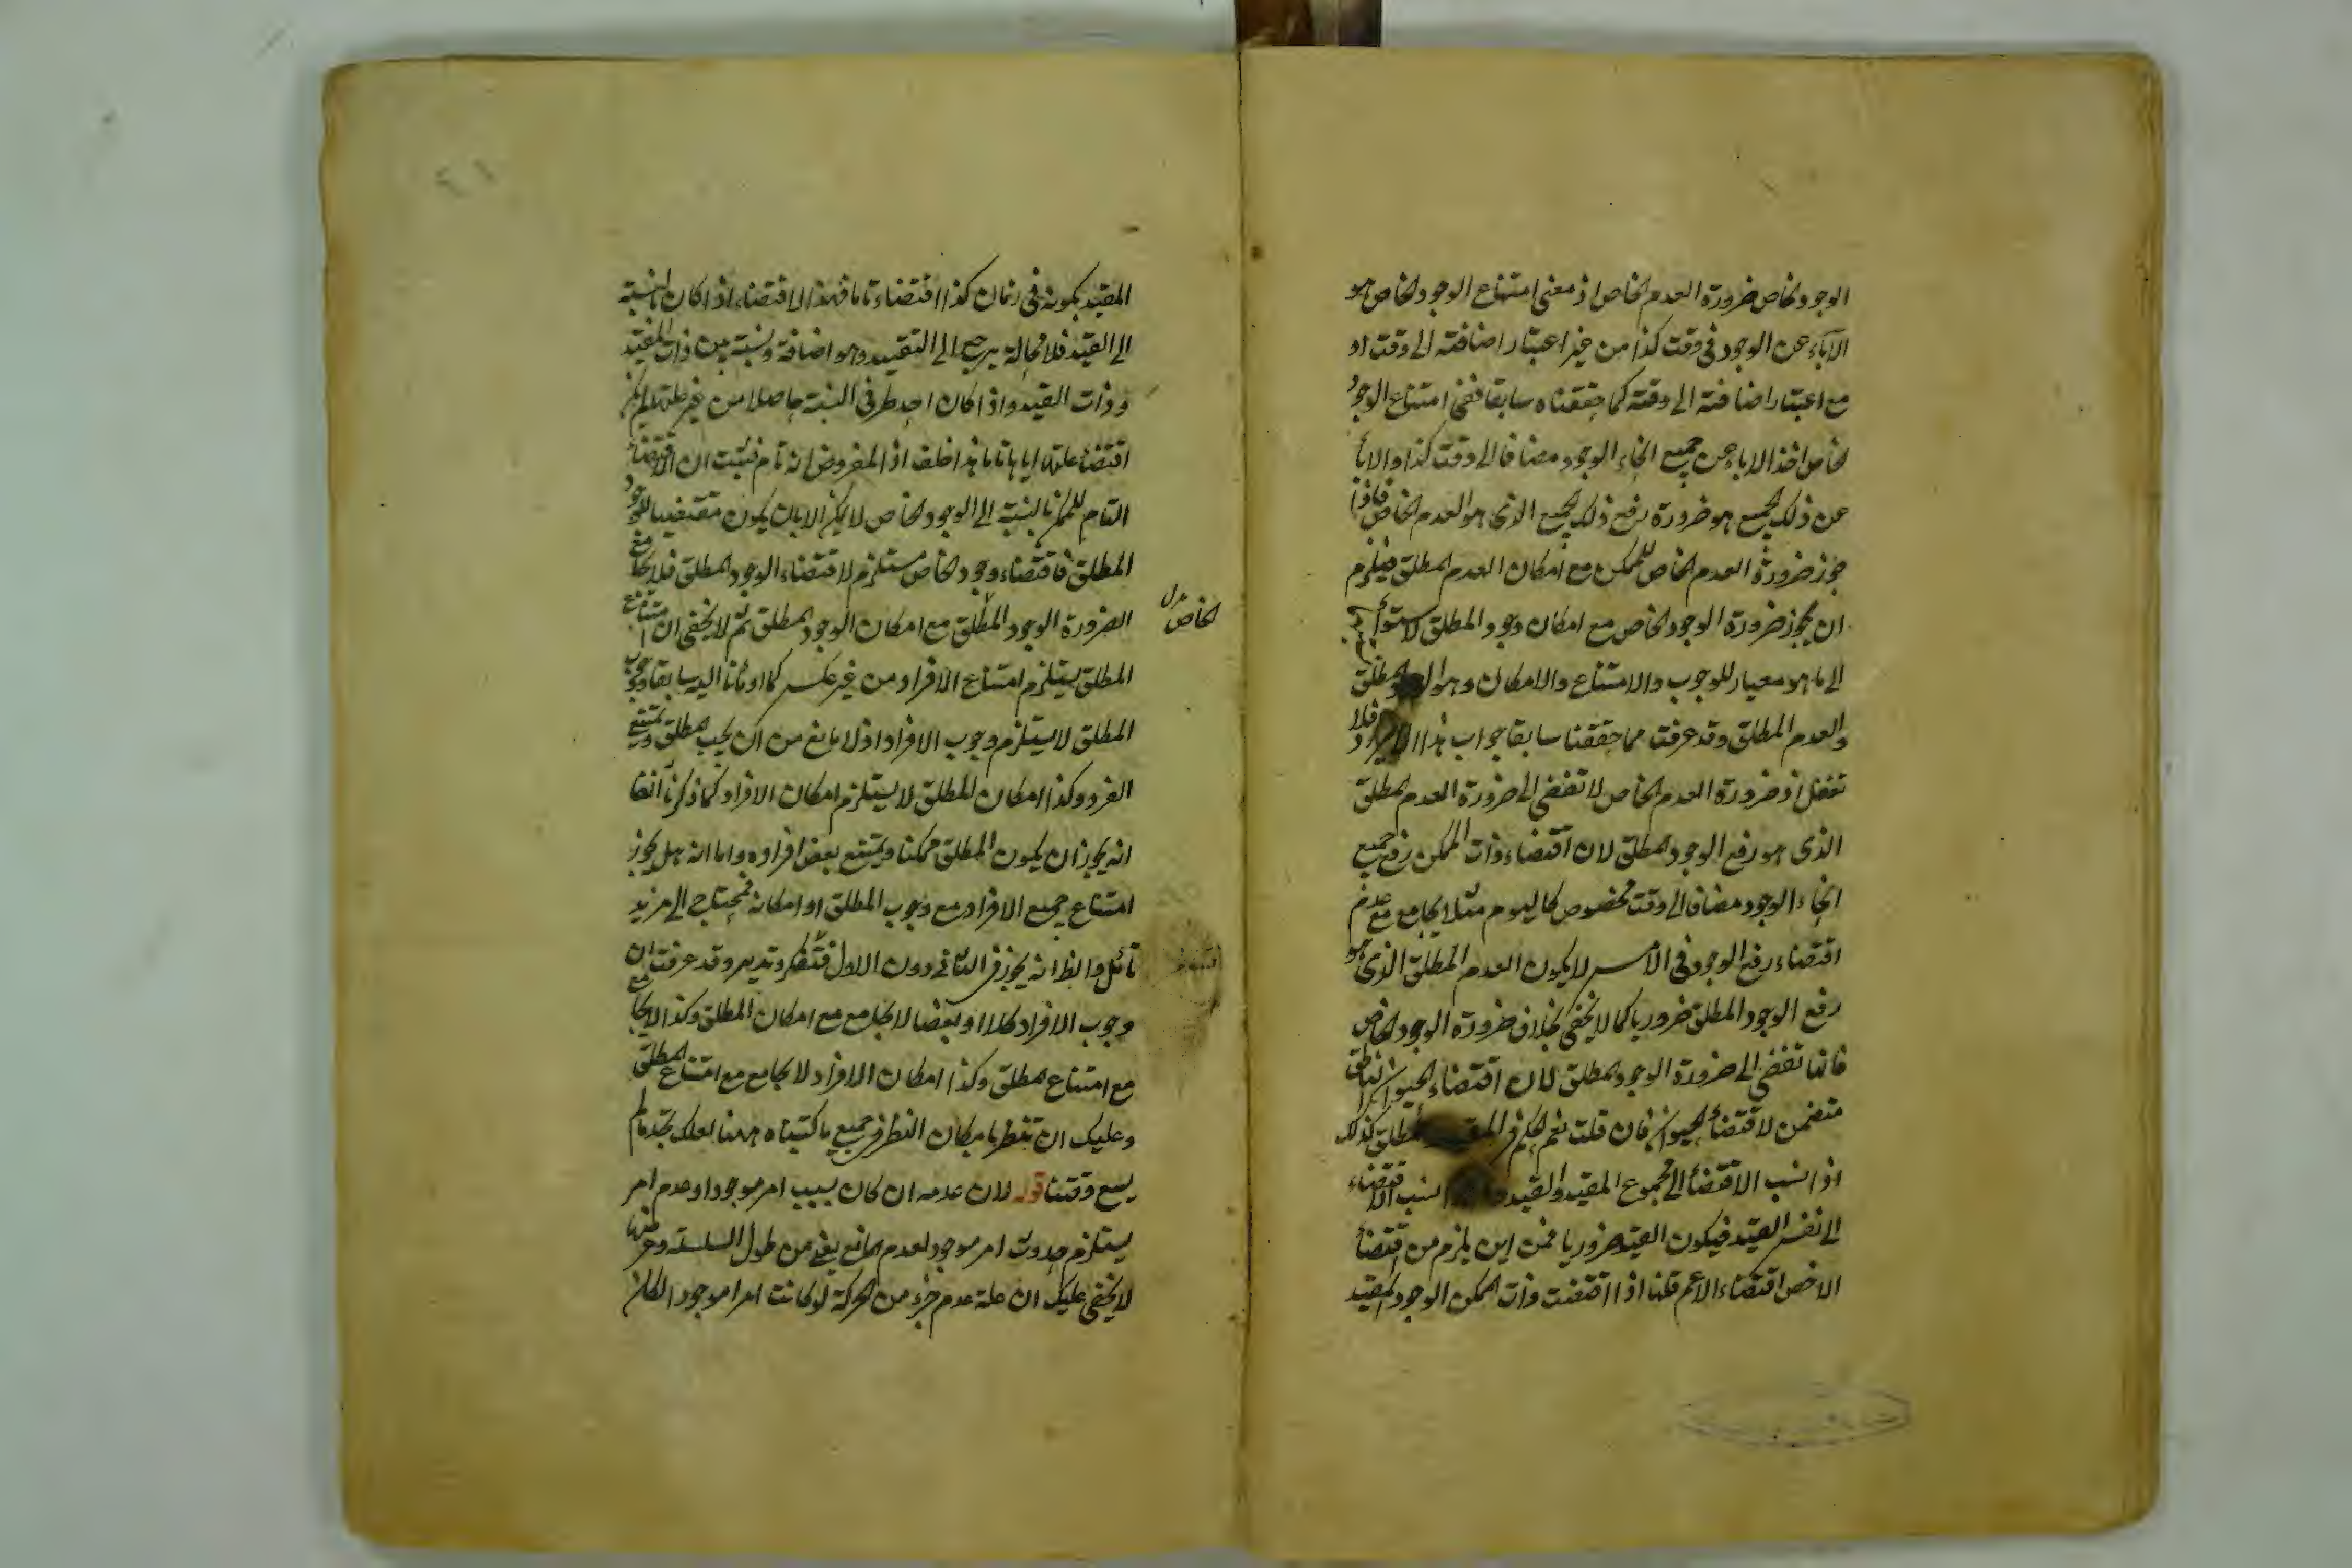 الوجود الخاص ضرورة العدم الخاص اذ معنى امتناع الوجود الخاص هو
الآباء عن الوجود فى وقت كذا من غير اعتبار اضافته الى وقت او
مع اعتبار اضافته الى وقته كما حققناه سابقا ففى امتناع الوجود
الخاص اخذ الاباء عن جميع انحاء الوجود مضافا الى وقت كذا والاباء
عن ذلك الجميع هو ضرورة رفع ذلك الجميع الذى هو العدم الخاص فاذا
جوز ضرورة العدم الخاص للممكن مع امكان العدم المطلق فيلزم
ان يجوز ضرورة الوجود الخاص مع امكان وجود المطلق لاستواء
الى ما هو معيار للوجوب والامتناع والامكان وهو الوجود المطلق
والعدم المطلق وقد عرفت مما حققنا سابقا جواب هذا الايراد فلا
تغفل اذ ضرورة العدم الخاص لا تفضى الى ضرورة العدم المطلق
الذى هو رفع الوجود المطلق لان اقتضاء ذات الممكن رفع جميع
انحاء الوجود مضافا الى وقت مخصوص كاليوم مثلا يجامع مع عدم
اقتضاء رفع الوجود فى الامس لا يكون العدم المطلق الذى هو
رفع الوجود المطلق ضروريا كما لا يخفى بخلاف ضرورة الوجود الخاص
فانها تفضى الى ضرورة الوجود المطلق لان اقتضاء الحيوان الناطق
متضمن لاقتضاء الحيوان فان قلت نعم الحكم فى المطلق كذلك
اذا نسب الاقتضاء الى مجموع المقيد والقيد نسب الاقتضاء
الى نفس القيد فيكون القيد ضروريا فمن اين يلزم من اقتضاء
الاخص اقتضاء الاعم قلنا اذا اقتضت ذات الممكن الوجود المقيد
المقيد بكونه فى زمان كذا اقتضاء تاما فهذا الاقتضاء اذا كان بالنسبة
الى القيد فلا محالة يرجع الى التقييد وهو اضافة ونسبة بين ذات المقيد
وذات القيد واذا كان احد طرفى النسبة حاصلا من غير علتها لم يكن
اقتضاء علتها اياها تاما هذا خلف اذ المفروض انه تام فثبت ان الاقتضاء
التام للممكن بالنسبة الى الوجود الخاص لا يمكن الا بان يكون مقتضيا للوجود
المطلق فاقتضاء وجود الخاص مستلزم لاقتضاء الوجود المطلق فلا يجامع
الضرورة الوجود المطلق مع امكان الوجود المطلق ثم لا يخفى ان امتناع
الخاص
المطلق يستلزم امتناع الافراد من غير عكس كما اومأنا اليه سابقا ووجوب
المطلق لا يستلزم وجوب الافراد اذ لا مانع من ان يجب المطلق ويمتنع
الفرد وكذا امكان المطلق لا يستلزم امكان الافراد كما ذكرنا آنفا
انه يجوز ان يكون المطلق ممكنا ويمتنع بعض افراده واما انه هل يجوز
امتناع جميع الافراد مع وجوب المطلق او امكانه فيحتاج الى مزيد
تأمل والظ انه يجوز فى الثانى دون الاول فتفكر وتدبر وقد عرفت ان
وجوب الافراد كلا او بعضا لا يجامع مع امكان المطلق وكذا لا يجامع
مع امتناع المطلق وكذا امكان الافراد لا يجامع مع امتناع المطلق
وعليك ان تنظر بامكان النظر فى جميع ما كتبناه ههنا لعلك تجد ما لم
يسع وقتنا قوله لان عدمه ان كان بسبب امر موجود او عدم امر
يستلزم حدوث امر موجود لعدم المانع يغنى من طول السلسلة وعرضها
لا يخفى عليك ان علة عدم جزء من الحركة لو كانت امرا موجودا لكان